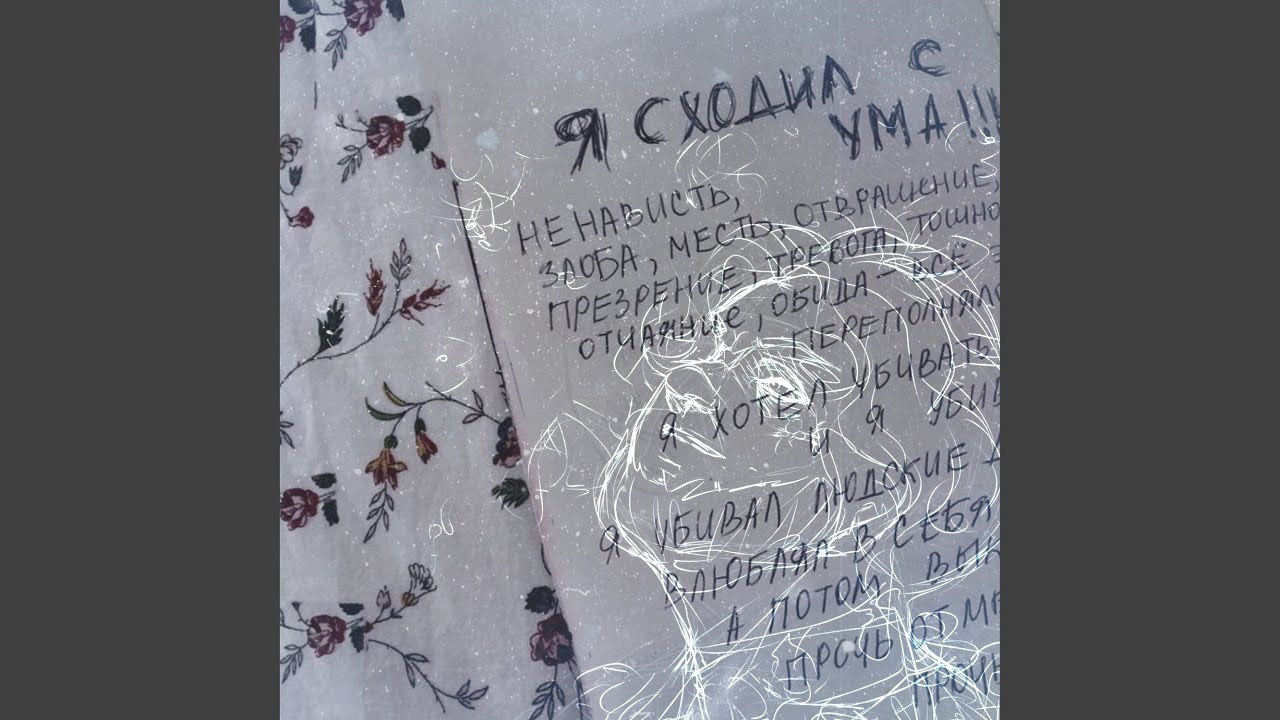 Я СХОДИЛ С
УМА!!!
НЕНАВИСТЬ,
ЗЛОБА, МЕСТЬ, ОТВРАЩЕНИЕ,
ПРЕЗРЕНИЕ, ТРЕВОГА, ТОШНО
ОТЧАЯНИЕ, ОБИДА – ВСЁ Э
ПЕРЕПОЛНЯЛО
Я ХОТЕЛ УБИВАТЬ
И Я УБИВ
Я УБИВАЛ ЛЮДСКИЕ Д
ВЛЮБЛЯЛ В СЕБЯ
А ПОТОМ ВЫК
ПРОЧЬ ОТ МЕ
ПРОЧЬ